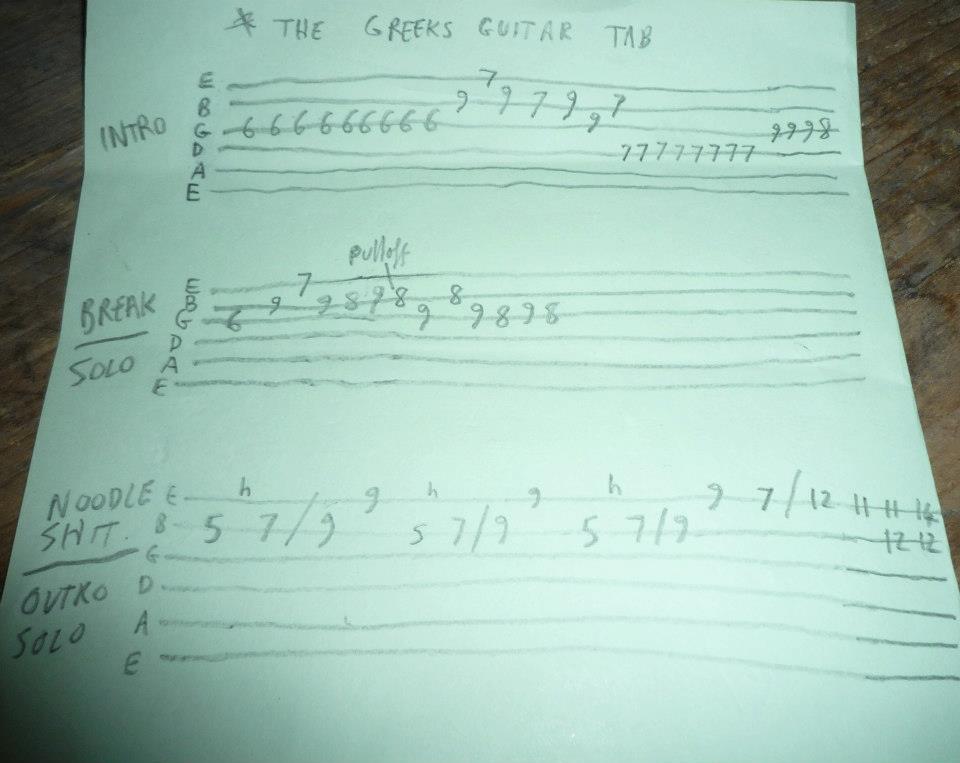 * THE GREEKS GUITAR TAB
INTRO
E 7
B 9 9 7 9 7
G 6 6 6 6 6 6 6 6 9 9 9 9 8
D 7 7 7 7 7 7 7 7
A
E
BREAK
SOLO
pulloff
E 7
B 9 9 8 9 8 8
G 6 9 9 8 9 8
D
A
E
NOODLE
SHIT.
OUTRO
SOLO
E h 9 h 9 h 9 7/12 11 11
B 5 7/9 5 7/9 5 7/9 12 12
G
D
A
E